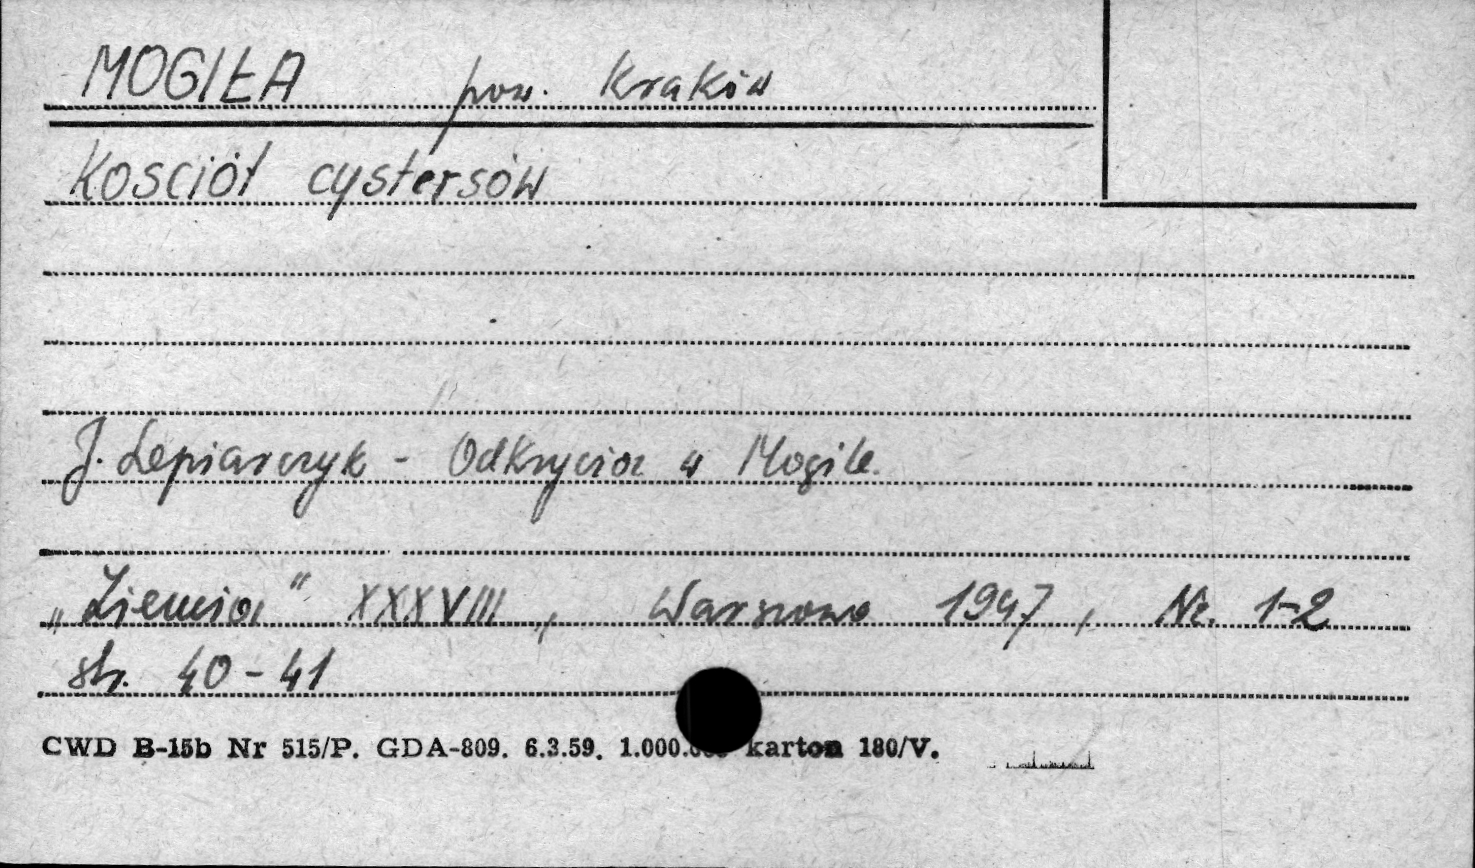 MOGIŁA pow. Kraków
Kościół cystersów
J. Lepiarczyk - Odkrycia w Mogile.
„Ziemia" XXXVIII, Warszawa 1947, Nr. 1-2
str. 40-41
CWD B-15b Nr 515/P. GDA-809. 6.3.59. 1.000.000 karton 180/V.